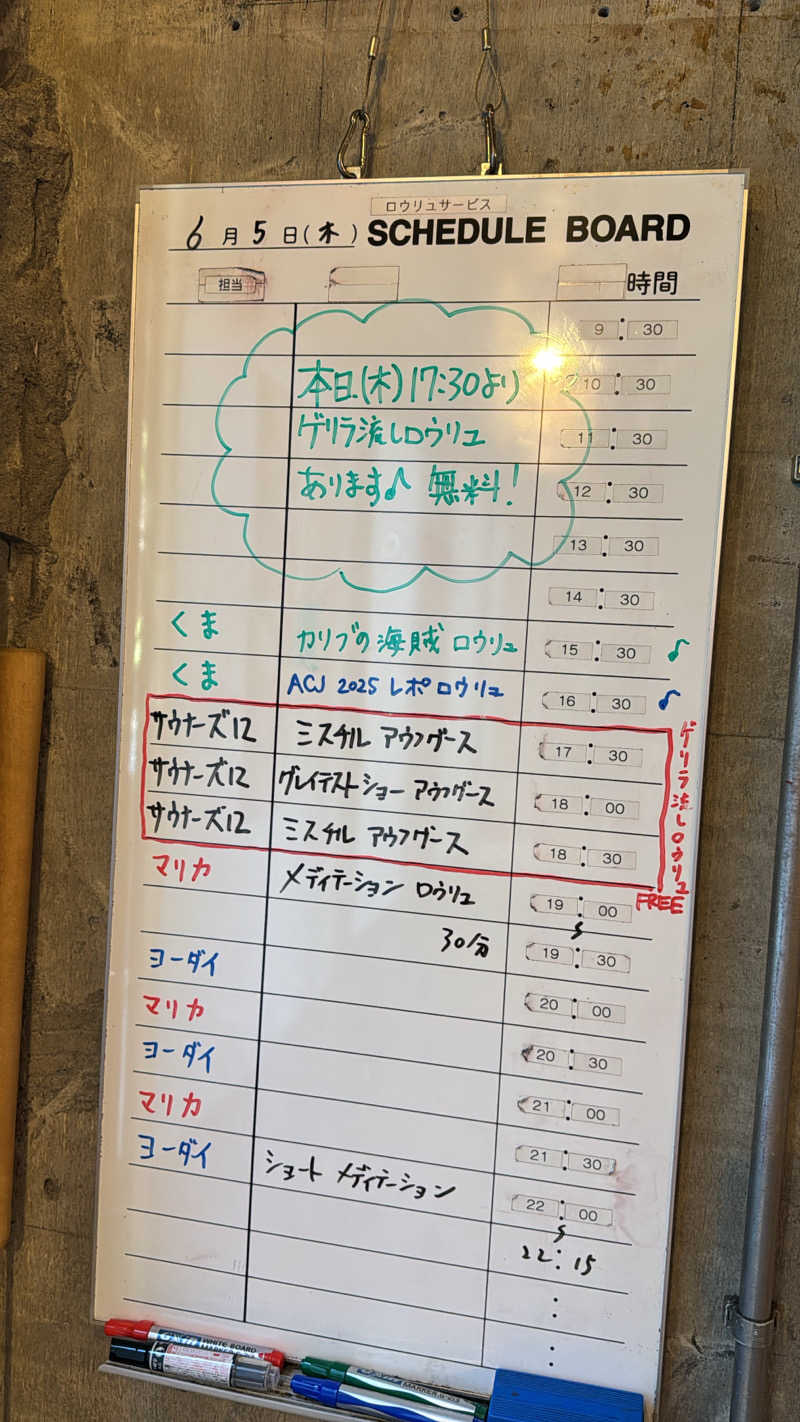 ロウリュサービス
6月5日(木) SCHEDULE BOARD
担当 時間
9:30
本日(木)17:30より 10:30
ゲリラ流しロウリュ 11:30
あります♪ 無料! 12:30
13:30
14:30
くま カリブの海賊 ロウリュ 15:30 ♪
くま ACJ 2025 レポロウリュ 16:30 ♪
サウナーズ12 ミスチル アウフグース 17:30
サウナーズ12 グレイテストショー アウフグース 18:00
サウナーズ12 ミスチル アウフグース 18:30
ゲリラ流しロウリュ
FREE
マリカ メディテーション ロウリュ 19:00
30分 19:30
ヨーダイ 20:00
マリカ 20:30
ヨーダイ 21:00
マリカ 21:30
ヨーダイ ショート メディテーション 22:00
22:15
WHITE BOARD